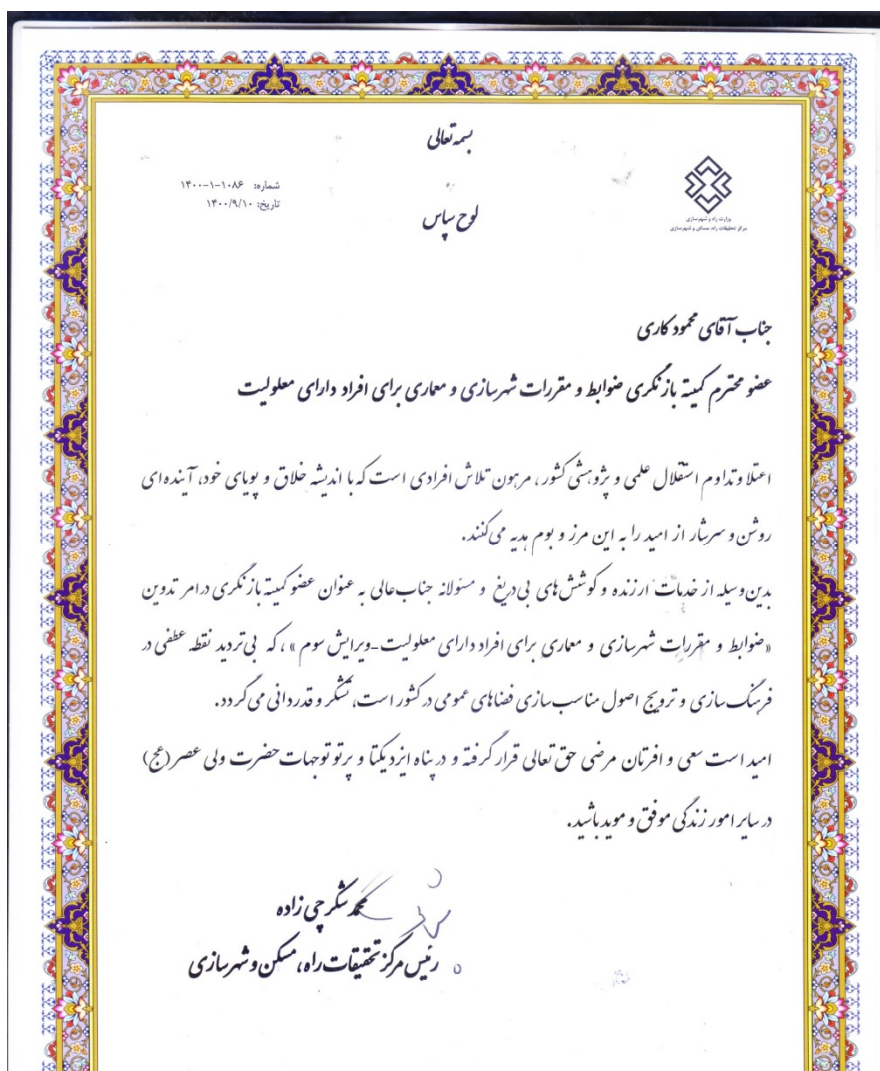 بسمه تعالی
شماره: ۱۴۰۰-۱-۱۰۸۶
تاریخ: ۱۴۰۰/۹/۱۰
وزارت راه و شهرسازی
مرکز تحقیقات راه، مسکن و شهرسازی
لوح سپاس
جناب آقای محمود کاری
عضو محترم کمیته بازنگری ضوابط و مقررات شهرسازی و معماری برای افراد دارای معلولیت
اعتلا و تداوم استقلال علمی و پژوهشی کشور، مرهون تلاش افرادی است که با اندیشه خلاق و پویای خود، آینده ای
روشن و سرشار از امید را به این مرز و بوم هدیه می کنند.
بدین وسیله از خدمات ارزنده و کوشش های بی دریغ و مسئولانه جناب عالی به عنوان عضو کمیته بازنگری در امر تدوین
«ضوابط و مقررات شهرسازی و معماری برای افراد دارای معلولیت-ویرایش سوم»، که بی تردید نقطه عطفی در
فرهنگ سازی و ترویج اصول مناسب سازی فضاهای عمومی در کشور است، تشکر و قدردانی می گردد.
امید است سعی وافرتان مرضی حق تعالی قرار گرفته و در پناه ایزد یکتا و پرتو توجهات حضرت ولی عصر (عج)
در سایر امور زندگی موفق و موید باشید.
محمد شکرچی زاده
رئیس مرکز تحقیقات راه، مسکن و شهرسازی